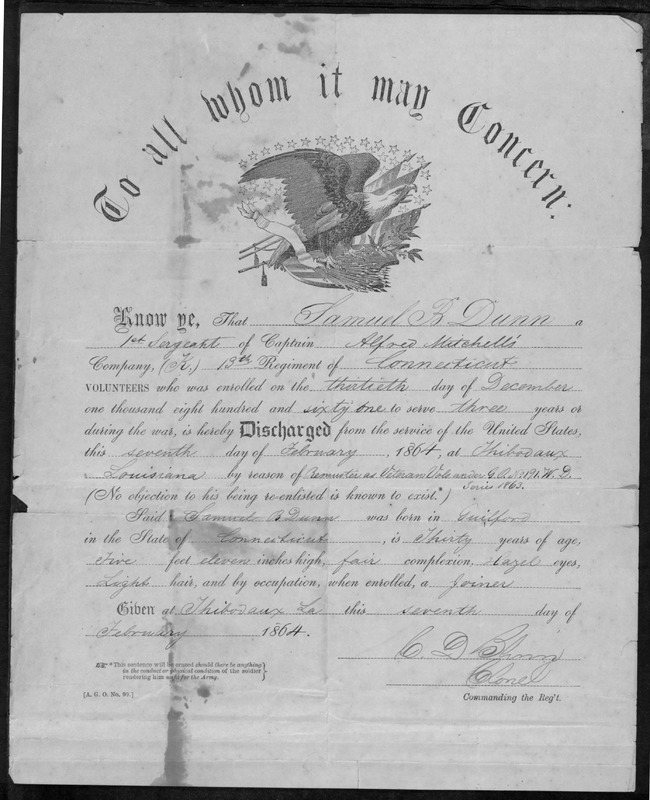 To all whom it may Concern:
Know ye, That Samuel B Dunn a
1st Sergeant of Captain Alfred Mitchell's
Company, (K,) 13th Regiment of Connecticut
VOLUNTEERS who was enrolled on the thirtieth day of December
one thousand eight hundred and sixty one to serve three years or
during the war, is hereby Discharged from the service of the United States,
this seventh day of February, 1864, at Thibodaux
Louisiana by reason of Remuster as Veteran Vols under G.O. No 191. W.D.
Series 1863.
(No objection to his being re-enlisted is known to exist.*)
Said Samuel B Dunn was born in Guilford
in the State of Connecticut, is Thirty years of age,
Five feet eleven inches high, fair complexion, Hazel eyes,
Light hair, and by occupation, when enrolled, a Joiner
Given at Thibodaux La this seventh day of
February 1864.
C. D.
Colonel
Commanding the Reg't.
*This sentence will be erased should there be anything
in the conduct or physical condition of the soldier
rendering him unfit for the Army.
[A. G. O. No. 99.]